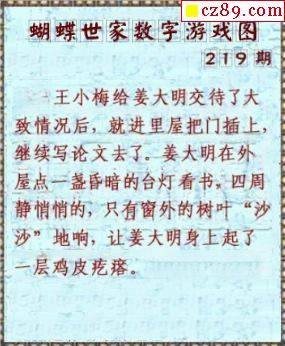 cz89.com
蝴蝶世家数字游戏图
219期
王小梅给姜大明交待了大
致情况后，就进里屋把门插上，
继续写论文去了。姜大明在外
屋点一盏昏暗的台灯看书，四周
静悄悄的，只有窗外的树叶“沙
沙”地响，让姜大明身上起了
一层鸡皮疙瘩。